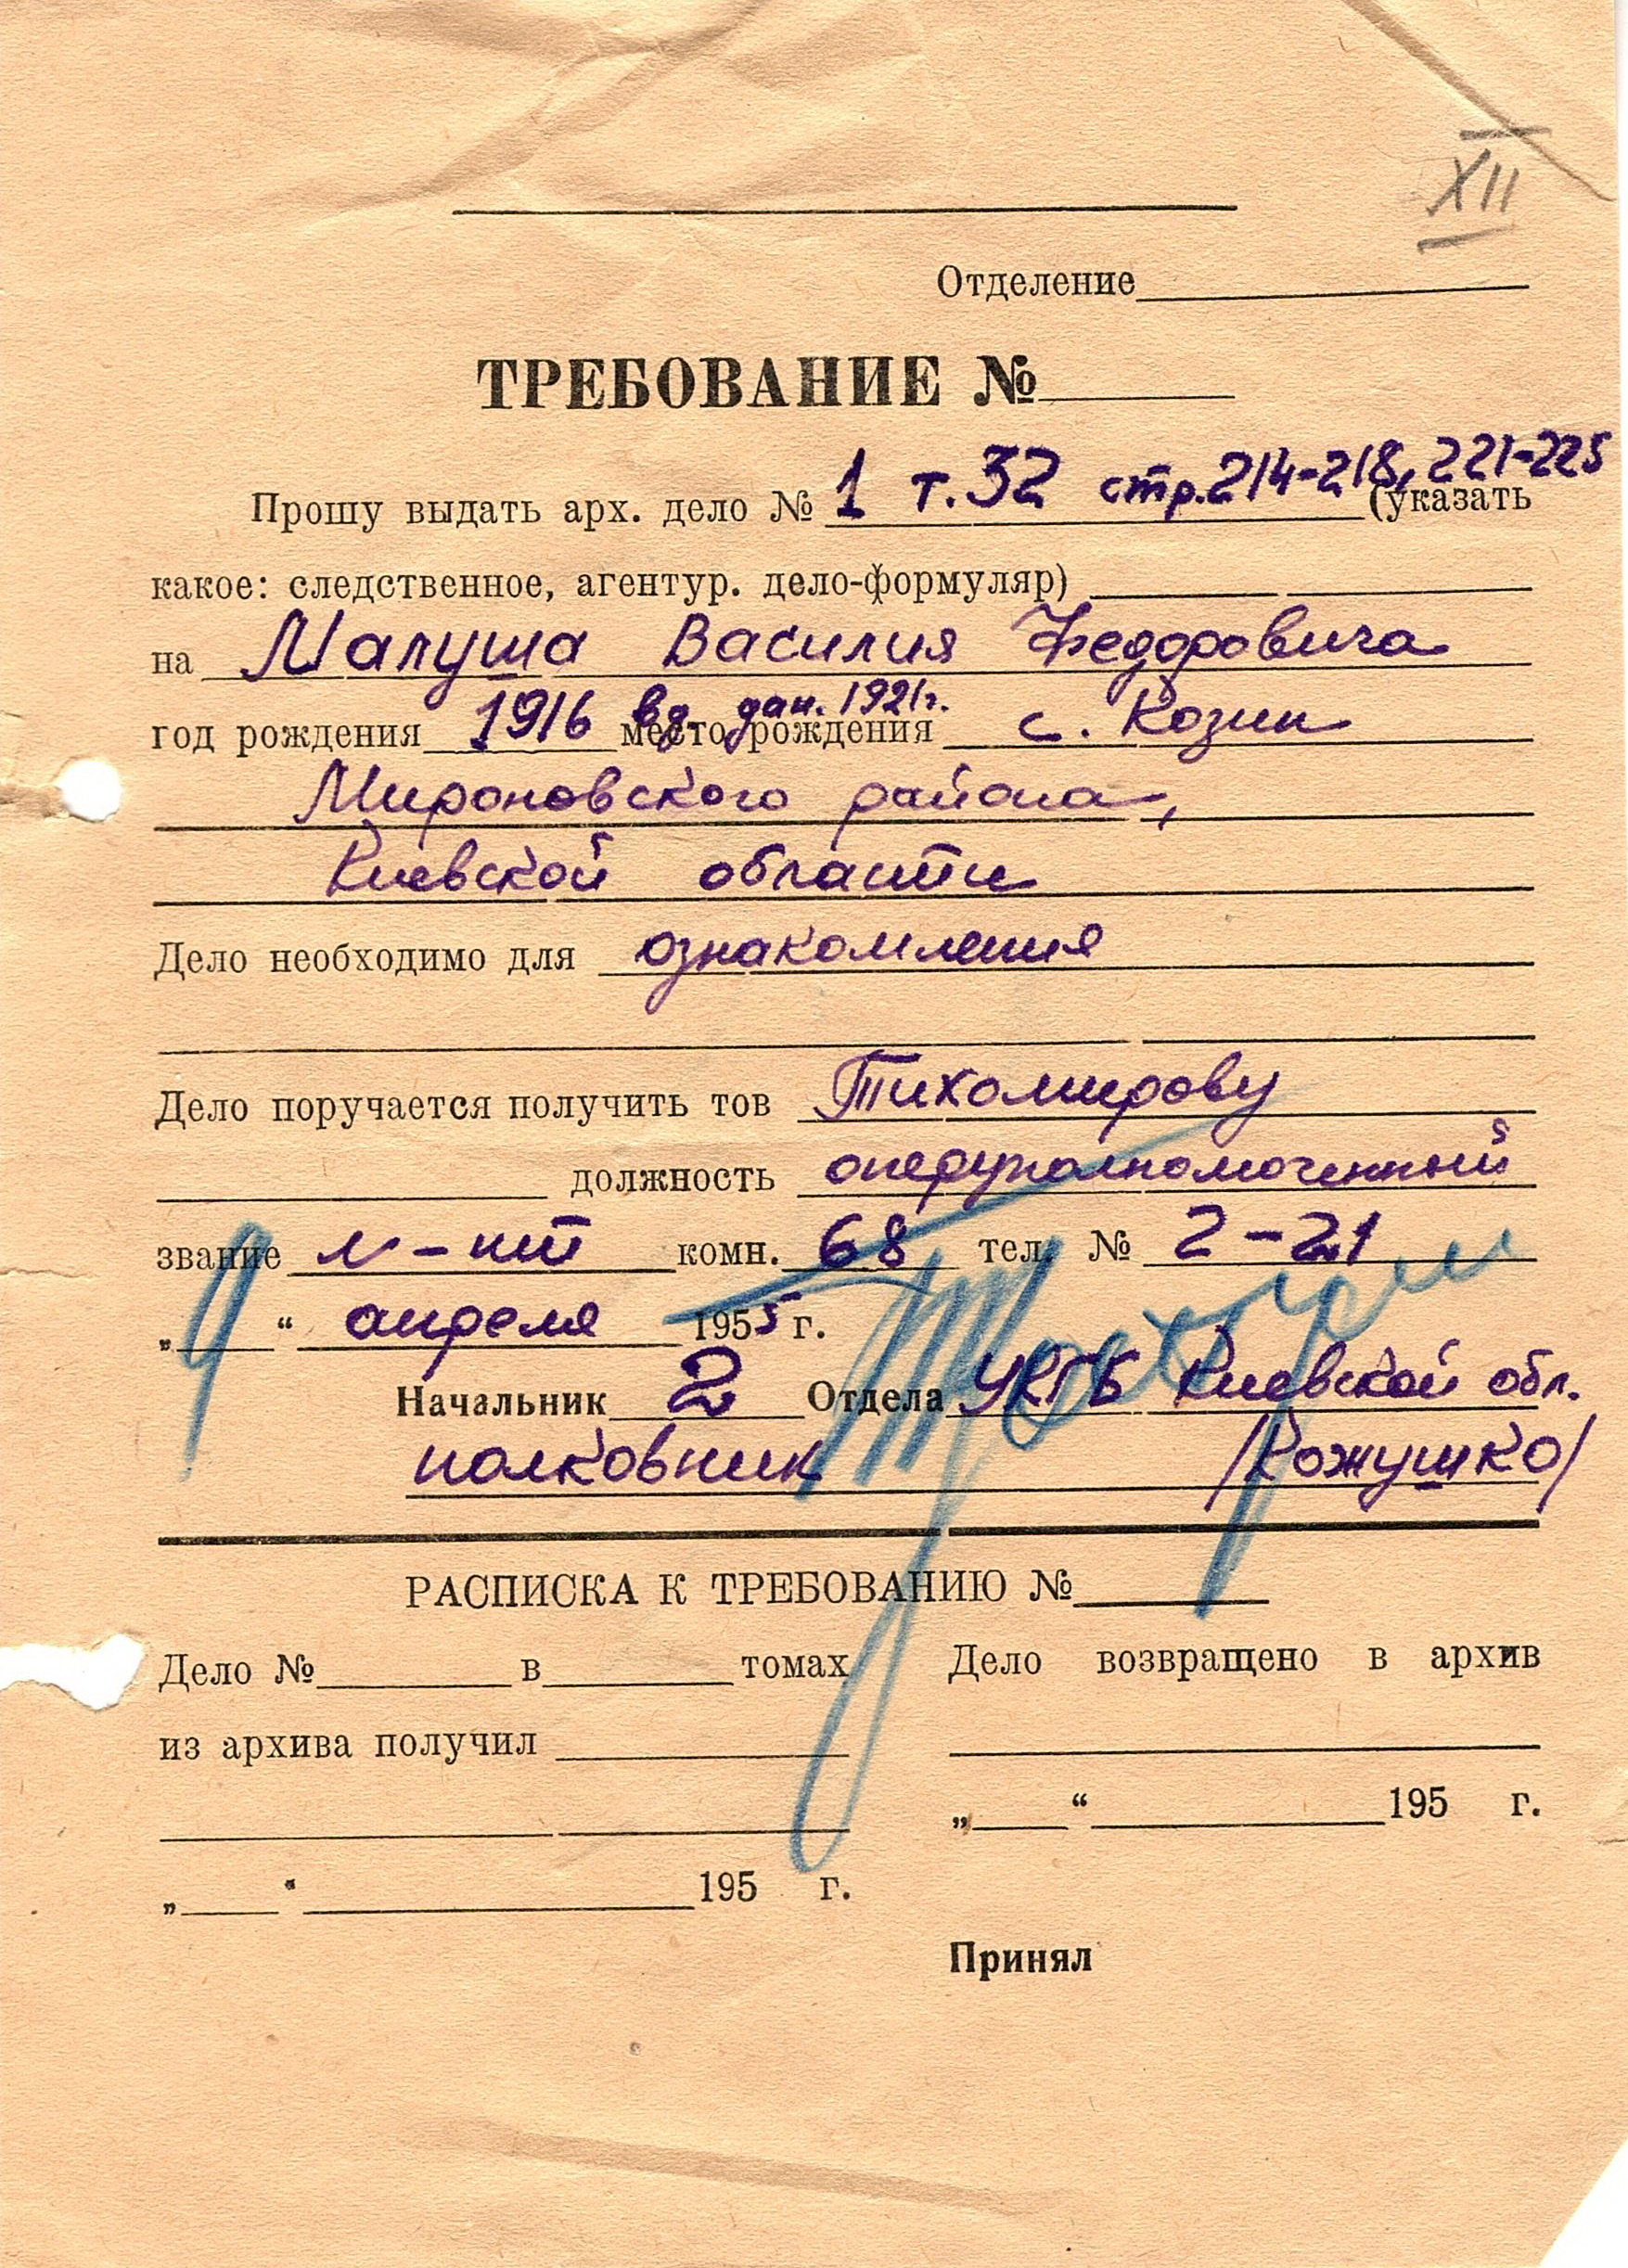 XII
Отделение
ТРЕБОВАНИЕ №
Прошу выдать арх. дело № 1 т.32 стр.214-218, 221-225 (указать
какое: следственное, агентур. дело-формуляр)
на Малуша Василия Федоровича
год рождения 1916 вд. дан. 1921г. место рождения с. Козин
Мироновского района,
Киевской области
Дело необходимо для ознакомления
Дело поручается получить тов Тихомирову
должность оперуполномоченный
звание л-нт комн. 68 тел. № 2-21
„ 9 “ апреля 1955 г.
Начальник 2 Отдела УКГБ Киевской обл.
полковник /Кожушко/
РАСПИСКА К ТРЕБОВАНИЮ №
Дело № в томах
из архива получил
„ “ 195 г.
Дело возвращено в архив
„ “ 195 г.
Принял